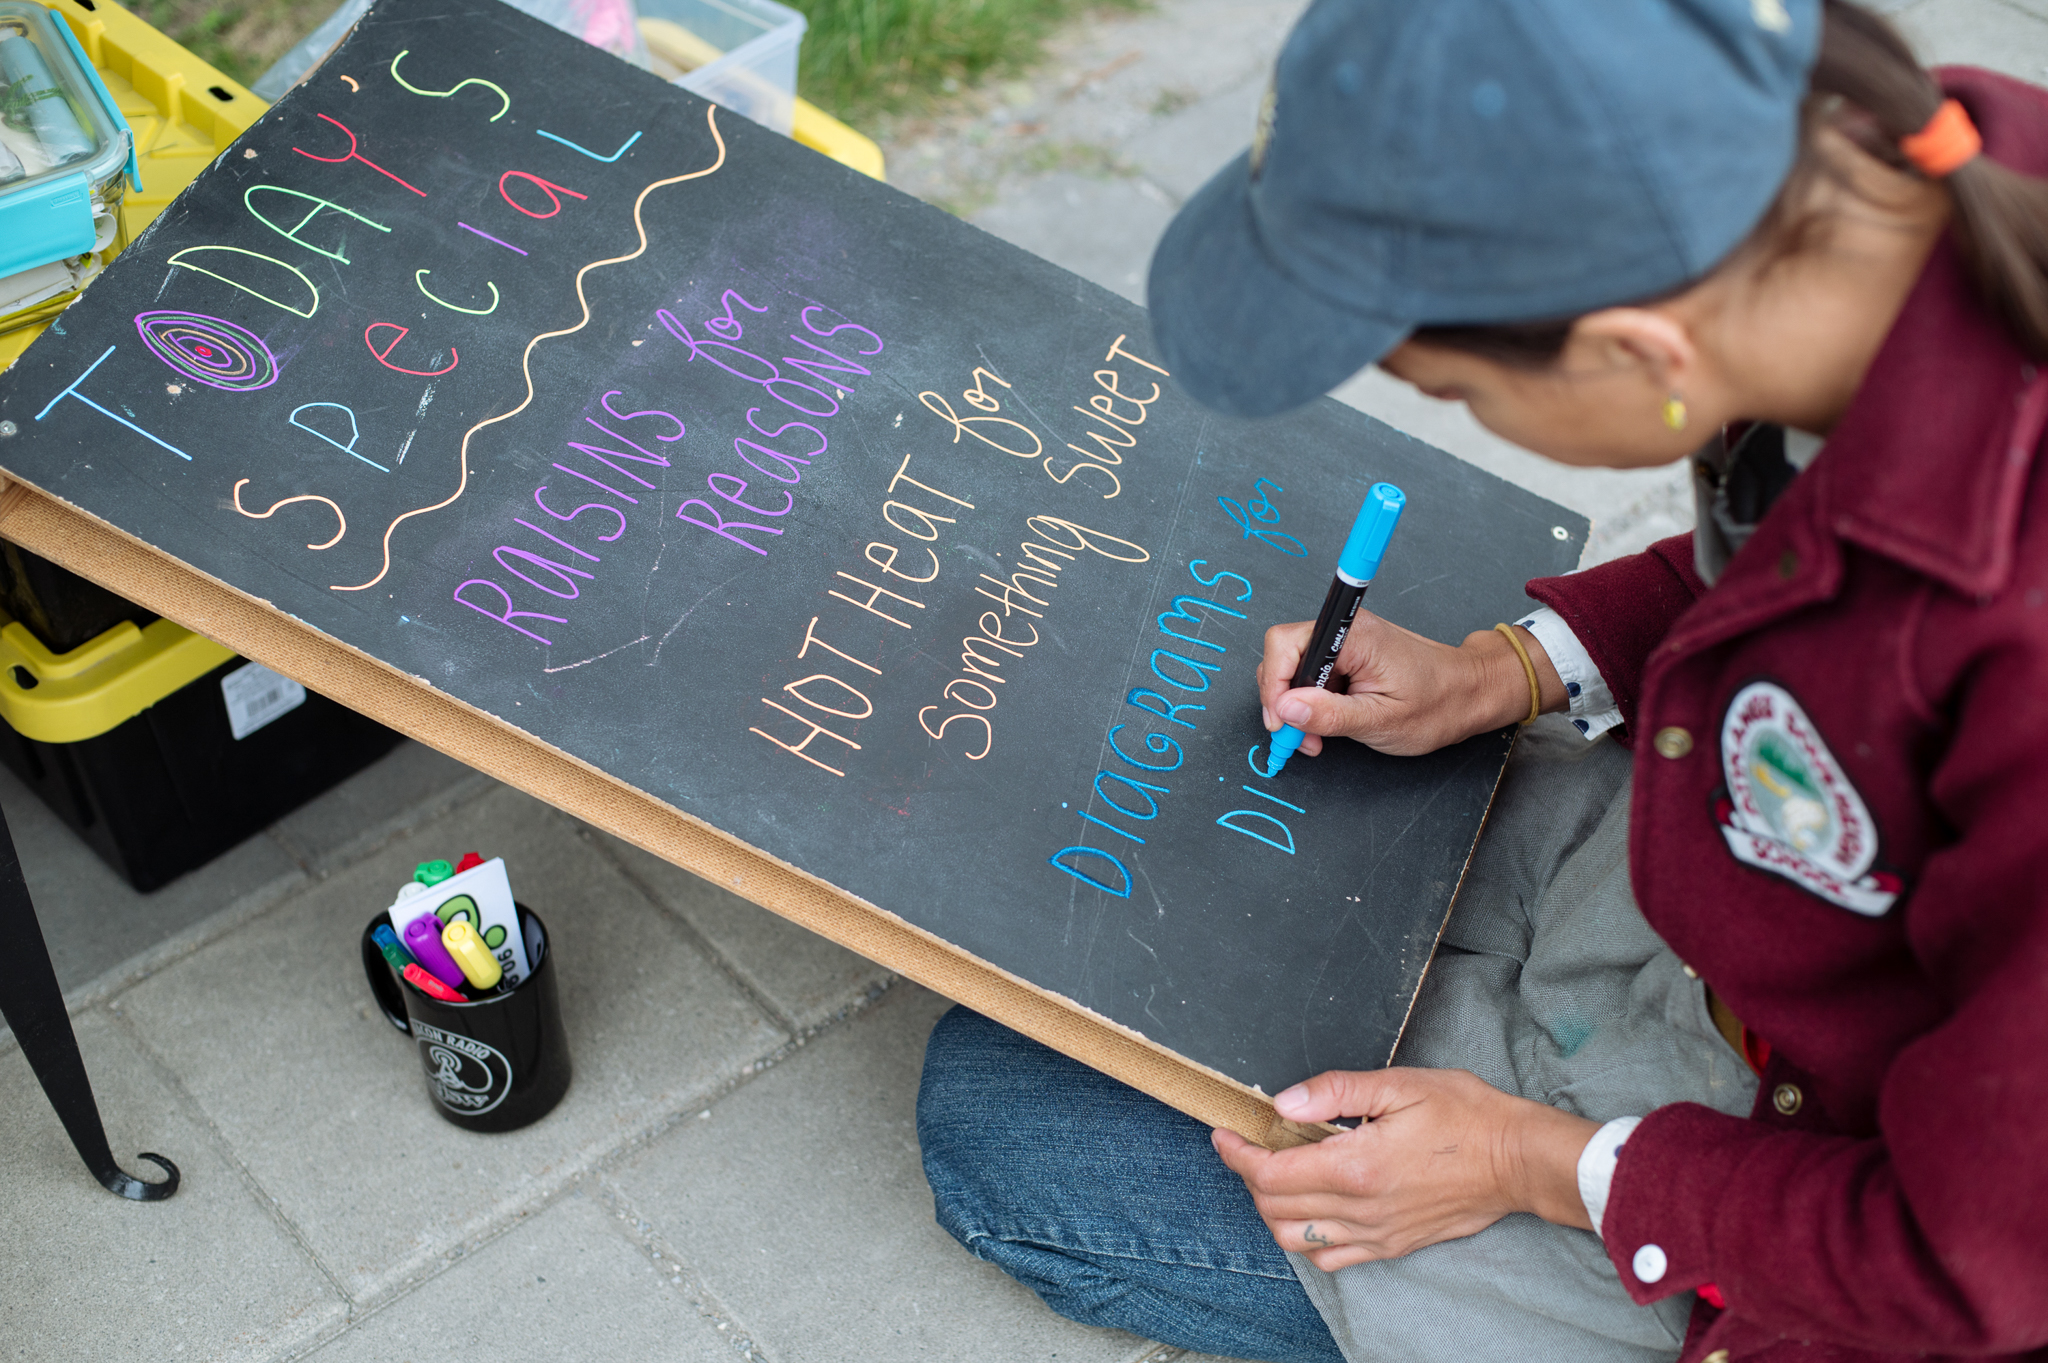 TODAY'S
SPeCiaL
RaISINS for
ReasONS
HOT HeaT for
Something SweeT
DIaGRamS for
Dic
CHALK
KON RADIO